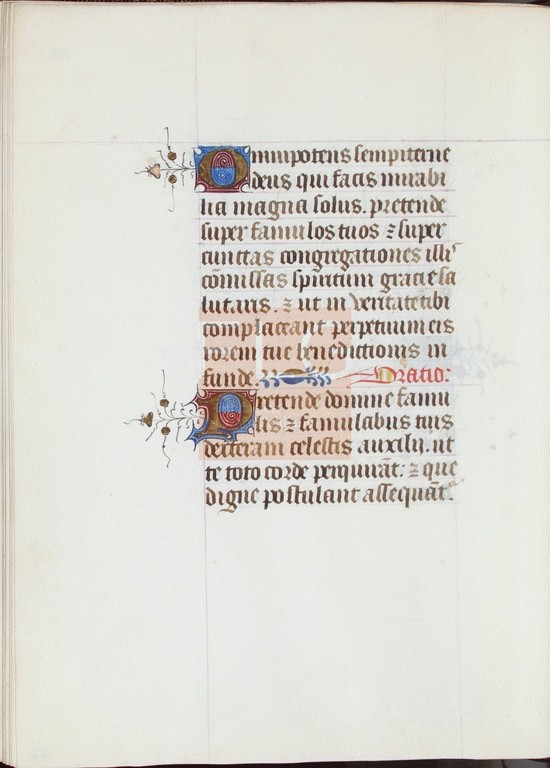 Omnipotens sempiterne
deus qui facis mirabi
lia magna solus. pretende
super famulos tuos ⁊ super
cunctas congregationes illis
cōmissas spiritum gracie sa
lutaris. ⁊ ut in veritate tibi
complaceant perpetuum eis
rorem tue benedictionis in
funde. Oratio:
Pretende domine famu
lis ⁊ famulabus tuis
dexteram celestis auxilij. ut
te toto corde perquirāt: ⁊ que
digne postulant assequāt̄.